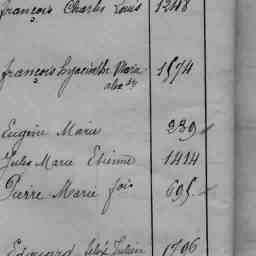 François Charles Louis 1248
2
François Hyacinthe Marie 1874
2
alex dre
Eugène Marie 239
Jules Marie Etienne 1414
Pierre Marie fois 695
Edmond felix Julien 1796